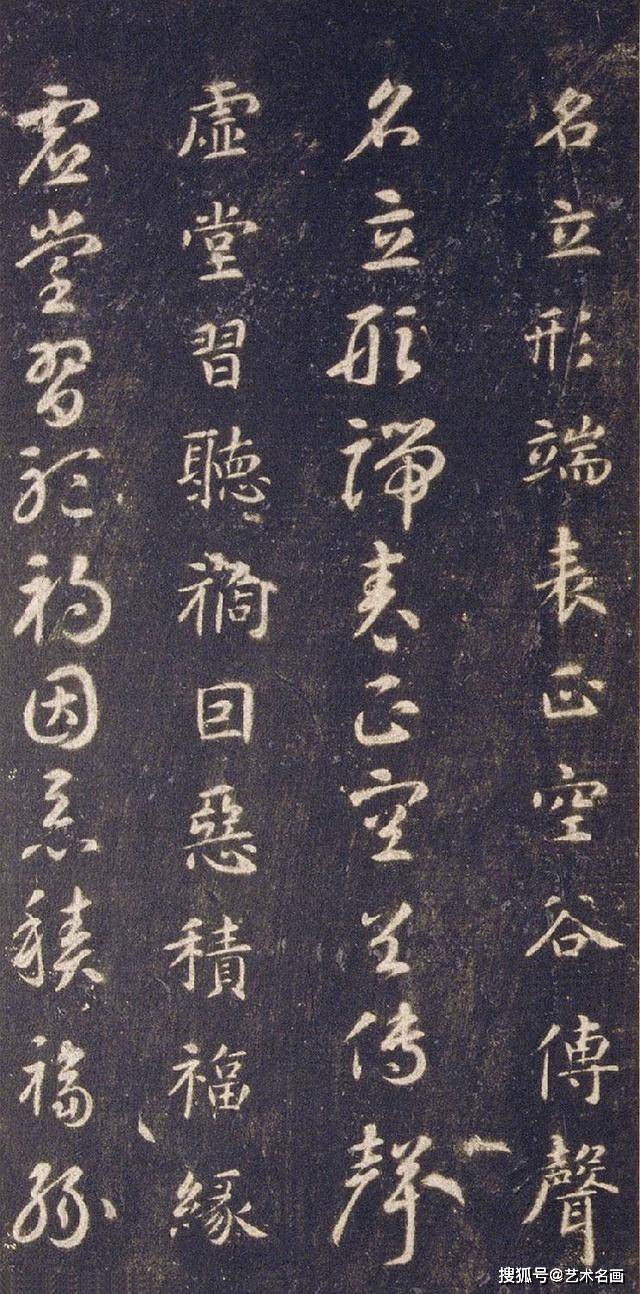 名立形端表正空谷傳聲
名立形端表正空谷傳聲
虛堂習聽禍因惡積福緣
虛堂習聽禍因惡積福緣
搜狐号@艺术名画